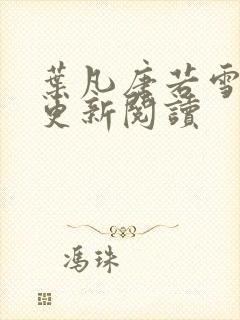 葉凡唐若雪
更新閱讀
馮珠